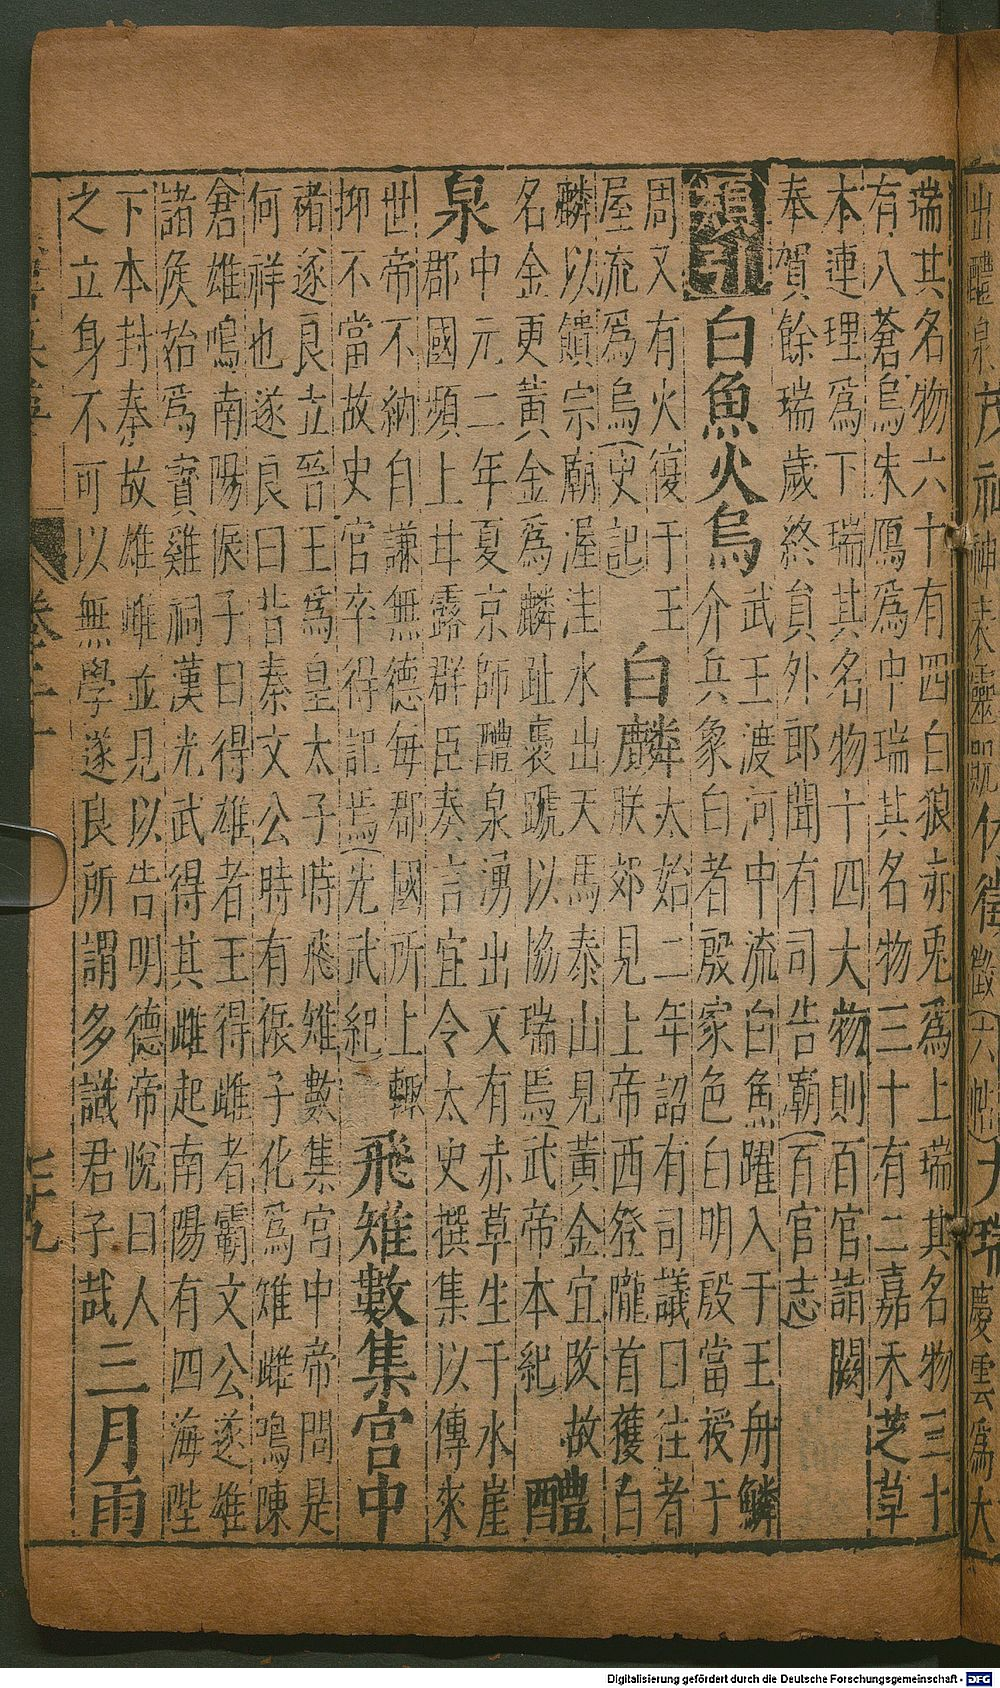 瑞其名物六十有四白狼赤兎爲上瑞其名物三十
有八蒼烏朱鴈爲中瑞其名物三十有二嘉禾芝草
木連理爲下瑞其名物十四大物則百官詣闕
奉賀餘瑞歲終員外郎聞有司告廟(百官志)
類引
白魚火烏
武王渡河中流白魚躍入于王舟鱗
介兵象白者殷家色白明殷當授于
周又有火復于王
屋流爲烏(史記)
白麟
太始二年詔有司議曰往者
朕郊見上帝西登隴首獲白
麟以饋宗廟渥洼水出天馬泰山見黃金宜改故
名金更黃金爲麟趾褭蹏以協瑞焉武帝本紀
醴
泉
中元二年夏京師醴泉湧出又有赤草生于水崖
郡國頻上甘露群臣奏言宜令太史撰集以傳來
世帝不納自謙無德每郡國所上輙
抑不當故史官卒得記焉(光武紀)
飛雉數集宮中
禇遂良立晉王爲皇太子時飛雉數集宮中帝問是
何祥也遂良曰昔秦文公時有倀子化爲雉雌鳴陳
倉雄鳴南陽倀子曰得雄者王得雌者霸文公遂雄
諸侯始爲寳雞祠漢光武得其雌起南陽有四海陛
下本封秦故雄雌並見以告明德帝悅曰人
之立身不可以無學遂良所謂多識君子哉
三月雨
卷三十一
出醴泉
慶雲爲大
Digitalisierung gefördert durch die Deutsche Forschungsgemeinschaft - DFG